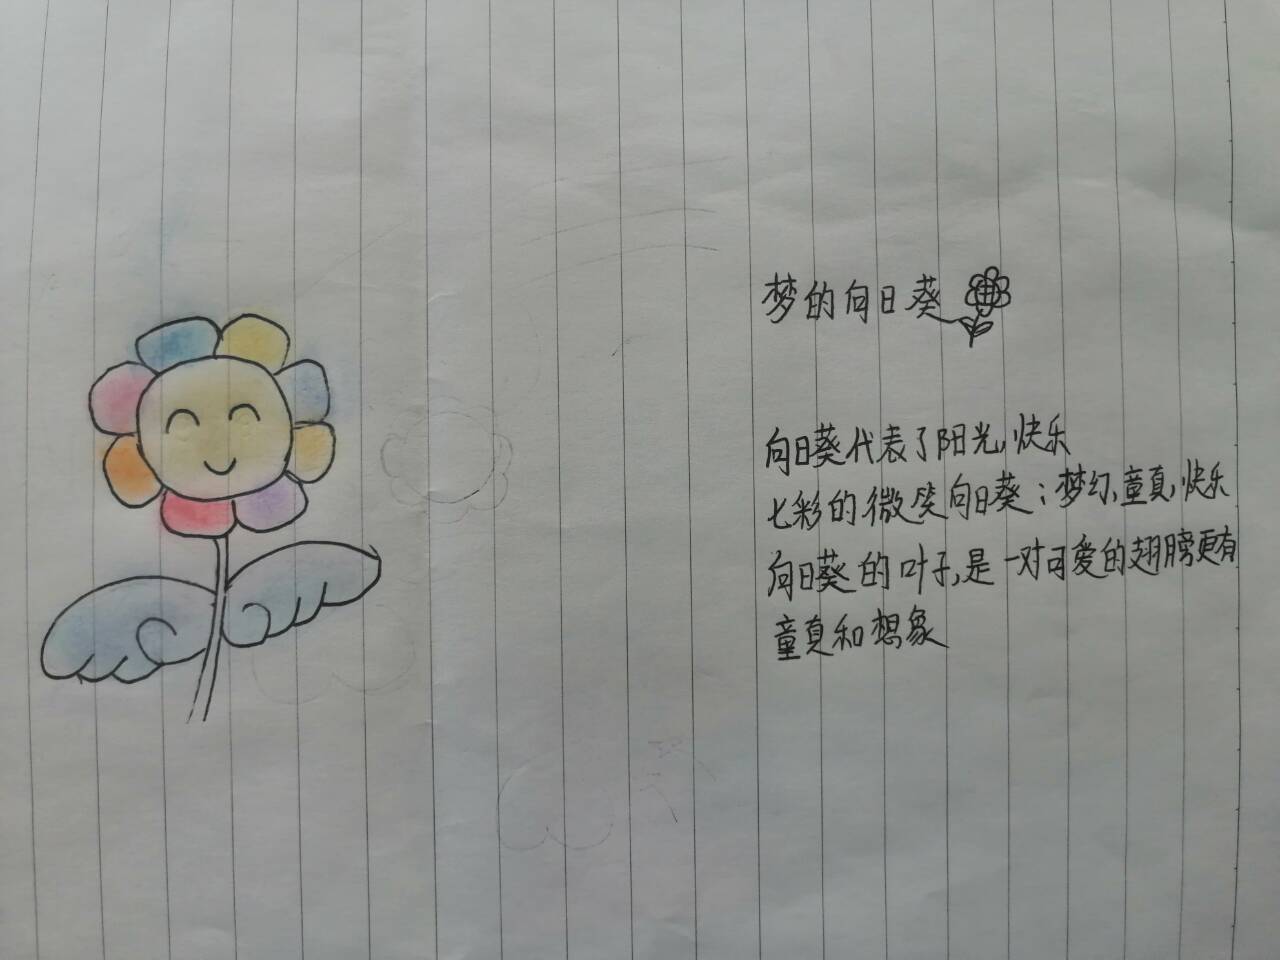 梦的向日葵
向日葵代表了阳光,快乐
七彩的微笑向日葵;梦幻,童真,快乐
向日葵的叶子,是一对可爱的翅膀更有
童真和想象